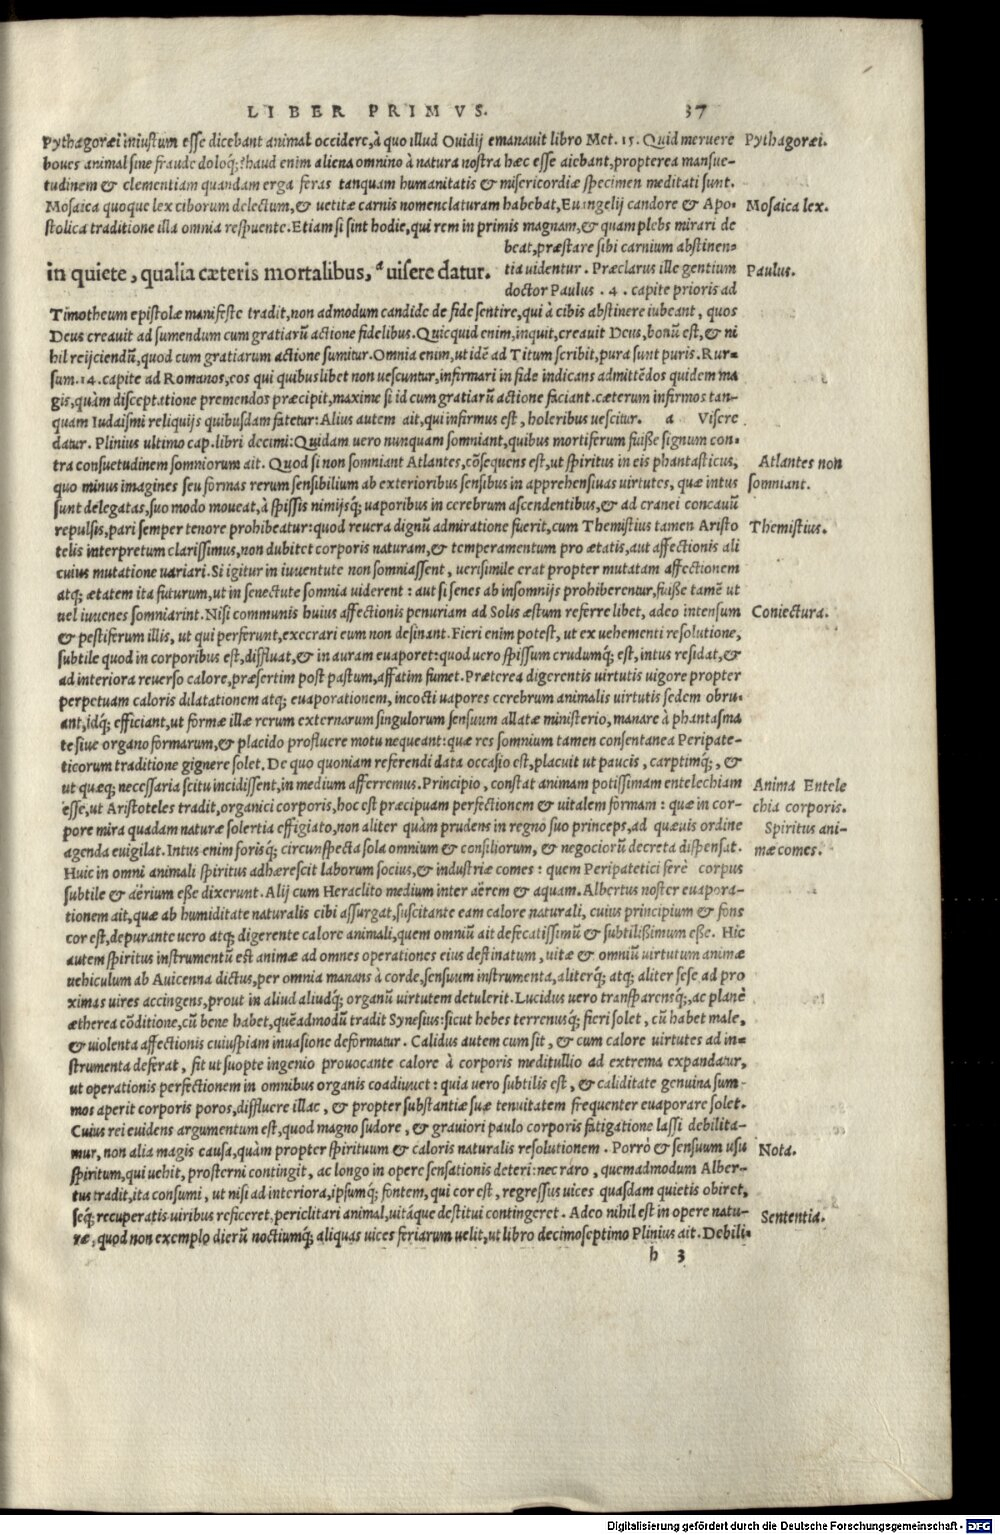 LIBER PRIMVS. 37
Pythagoræi iniustum esse dicebant animal occidere, à quo illud Ouidij emanauit libro Met. 15. Quid meruere Pythagoræi.
boues animal sine fraude doloq́;? haud enim aliena omnino à natura nostra hæc esse aiebant, propterea mansue-
tudinem & clementiam quandam erga feras tanquam humanitatis & misericordiæ specimen meditati sunt.
Mosaica quoque lex ciborum delectum, & uetitæ carnis nomenclaturam habebat, Euangelij candore & Apo- Mosaica lex.
stolica traditione illa omnia respuente. Etiam si sint hodie, qui rem in primis magnam, & quam plebs mirari de
beat, præstare sibi carnium abstinen-
in quiete, qualia cæteris mortalibus, ª uisere datur. tia uidentur. Præclarus ille gentium Paulus.
doctor Paulus . 4 . capite prioris ad
Timotheum epistolæ manifeste tradit, non admodum candide de fide sentire, qui à cibis abstinere iubeant, quos
Deus creauit ad sumendum cum gratiarũ actione fidelibus. Quicquid enim, inquit, creauit Deus, bonũ est, & ni
hil reijciendũ, quod cum gratiarum actione sumitur. Omnia enim, ut idẽ ad Titum scribit, pura sunt puris. Rur-
sum .14. capite ad Romanos, eos qui quibuslibet non uescuntur, infirmari in fide indicans admittẽdos quidem ma
gis, quàm disceptatione premendos præcipit, maxime si id cum gratiarũ actione faciant. cæterum infirmos tan-
quam Iudaismi reliquijs quibusdam fatetur: Alius autem ait, qui infirmus est, holeribus uescitur. a Visere
datur. Plinius ultimo cap. libri decimi: Quidam uero nunquam somniant, quibus mortiferum fuisse signum con-
tra consuetudinem somniorum ait. Quod si non somniant Atlantes, cõsequens est, ut spiritus in eis phantasticus, Atlantes non
quo minus imagines seu formas rerum sensibilium ab exterioribus sensibus in apprehensiuas uirtutes, quæ intus somniant.
sunt delegatas, suo modo moueat, à spissis nimijsq́; uaporibus in cerebrum ascendentibus, & ad cranei concauũ
repulsis, pari semper tenore prohibeatur: quod reuera dignũ admiratione fuerit, cum Themistius tamen Aristo Themistius.
telis interpretum clarissimus, non dubitet corporis naturam, & temperamentum pro ætatis, aut affectionis ali
cuius mutatione uariari. Si igitur in iuuentute non somniassent, uerisimile erat propter mutatam affectionem
atq; ætatem ita futurum, ut in senectute somnia uiderent : aut si senes ab insomnijs prohiberentur, fuisse tamẽ ut
uel iuuenes somniarint. Nisi communis huius affectionis penuriam ad Solis æstum referre libet, adeo intensum Coniectura.
& pestiferum illis, ut qui perferunt, execrari eum non desinant. Fieri enim potest, ut ex uehementi resolutione,
subtile quod in corporibus est, diffluat, & in auram euaporet: quod uero spissum crudumq́; est, intus residat, &
ad interiora reuerso calore, præsertim post pastum, affatim fumet. Præterea digerentis uirtutis uigore propter
perpetuam caloris dilatationem atq; euaporationem, incocti uapores cerebrum animalis uirtutis sedem obru-
ant, idq́; efficiant, ut formæ illæ rerum externarum singulorum sensuum allatæ ministerio, manare à phantasma
te siue organo formarum, & placido profluere motu nequeant: quæ res somnium tamen consentanea Peripate-
ticorum traditione gignere solet. De quo quoniam referendi data occasio est, placuit ut paucis, carptimq́;, &
ut quæq; necessaria scitu incidissent, in medium afferremus. Principio, constat animam potissimam entelechiam Anima Entele
esse, ut Aristoteles tradit, organici corporis, hoc est præcipuam perfectionem & uitalem formam : quæ in cor- chia corporis.
pore mira quadam naturæ solertia effigiato, non aliter quàm prudens in regno suo princeps, ad quæuis ordine Spiritus ani-
agenda euigilat. Intus enim forisq́; circunspecta sola omnium & consiliorum, & negociorũ decreta dispensat. mæ comes.
Huic in omni animali spiritus adhærescit laborum socius, & industriæ comes : quem Peripatetici ferè corpus
subtile & aërium esse dixerunt. Alij cum Heraclito medium inter aërem & aquam. Albertus noster euapora-
tionem ait, quæ ab humiditate naturalis cibi assurgat, suscitante eam calore naturali, cuius principium & fons
cor est, depurante uero atq; digerente calore animali, quem omniũ ait defecatissimũ & subtilissimum esse. Hic
autem spiritus instrumentũ est animæ ad omnes operationes eius destinatum, uitæ & omniũ uirtutum animæ
uehiculum ab Auicenna dictus, per omnia manans à corde, sensuum instrumenta, aliterq́; atq; aliter sese ad pro
ximas uires accingens, prout in aliud aliudq́; organũ uirtutem detulerit. Lucidus uero transparensq́;, ac planè
ætherea cõditione, cũ bene habet, quẽadmodũ tradit Synesius: sicut hebes terrenusq́; fieri solet, cũ habet male,
& uiolenta affectionis cuiuspiam inuasione deformatur. Calidus autem cum sit, & cum calore uirtutes ad in-
strumenta deferat, fit ut suopte ingenio prouocante calore à corporis meditullio ad extrema expandatur,
ut operationis perfectionem in omnibus organis coadiuuet : quia uero subtilis est, & caliditate genuina sum-
mos aperit corporis poros, diffluere illac, & propter substantiæ suæ tenuitatem frequenter euaporare solet.
Cuius rei euidens argumentum est, quod magno sudore, & grauiori paulo corporis fatigatione lassi debilita-
mur, non alia magis causa, quàm propter spirituum & caloris naturalis resolutionem. Porrò & sensuum usu Nota.
spiritum, qui uehit, prosterni contingit, ac longo in opere sensationis deteri: nec raro, quemadmodum Alber-
tus tradit, ita consumi, ut nisi ad interiora, ipsumq́; fontem, qui cor est, regressus uices quasdam quietis obiret,
seq́; recuperatis uiribus reficeret, periclitari animal, uitáque destitui contingeret. Adeo nihil est in opere natu- Sententia.
ræ, quod non exemplo dierũ noctiumq́; aliquas uices feriarum uelit, ut libro decimoseptimo Plinius ait. Debili-
h 3
Digitalisierung gefördert durch die Deutsche Forschungsgemeinschaft - DFG